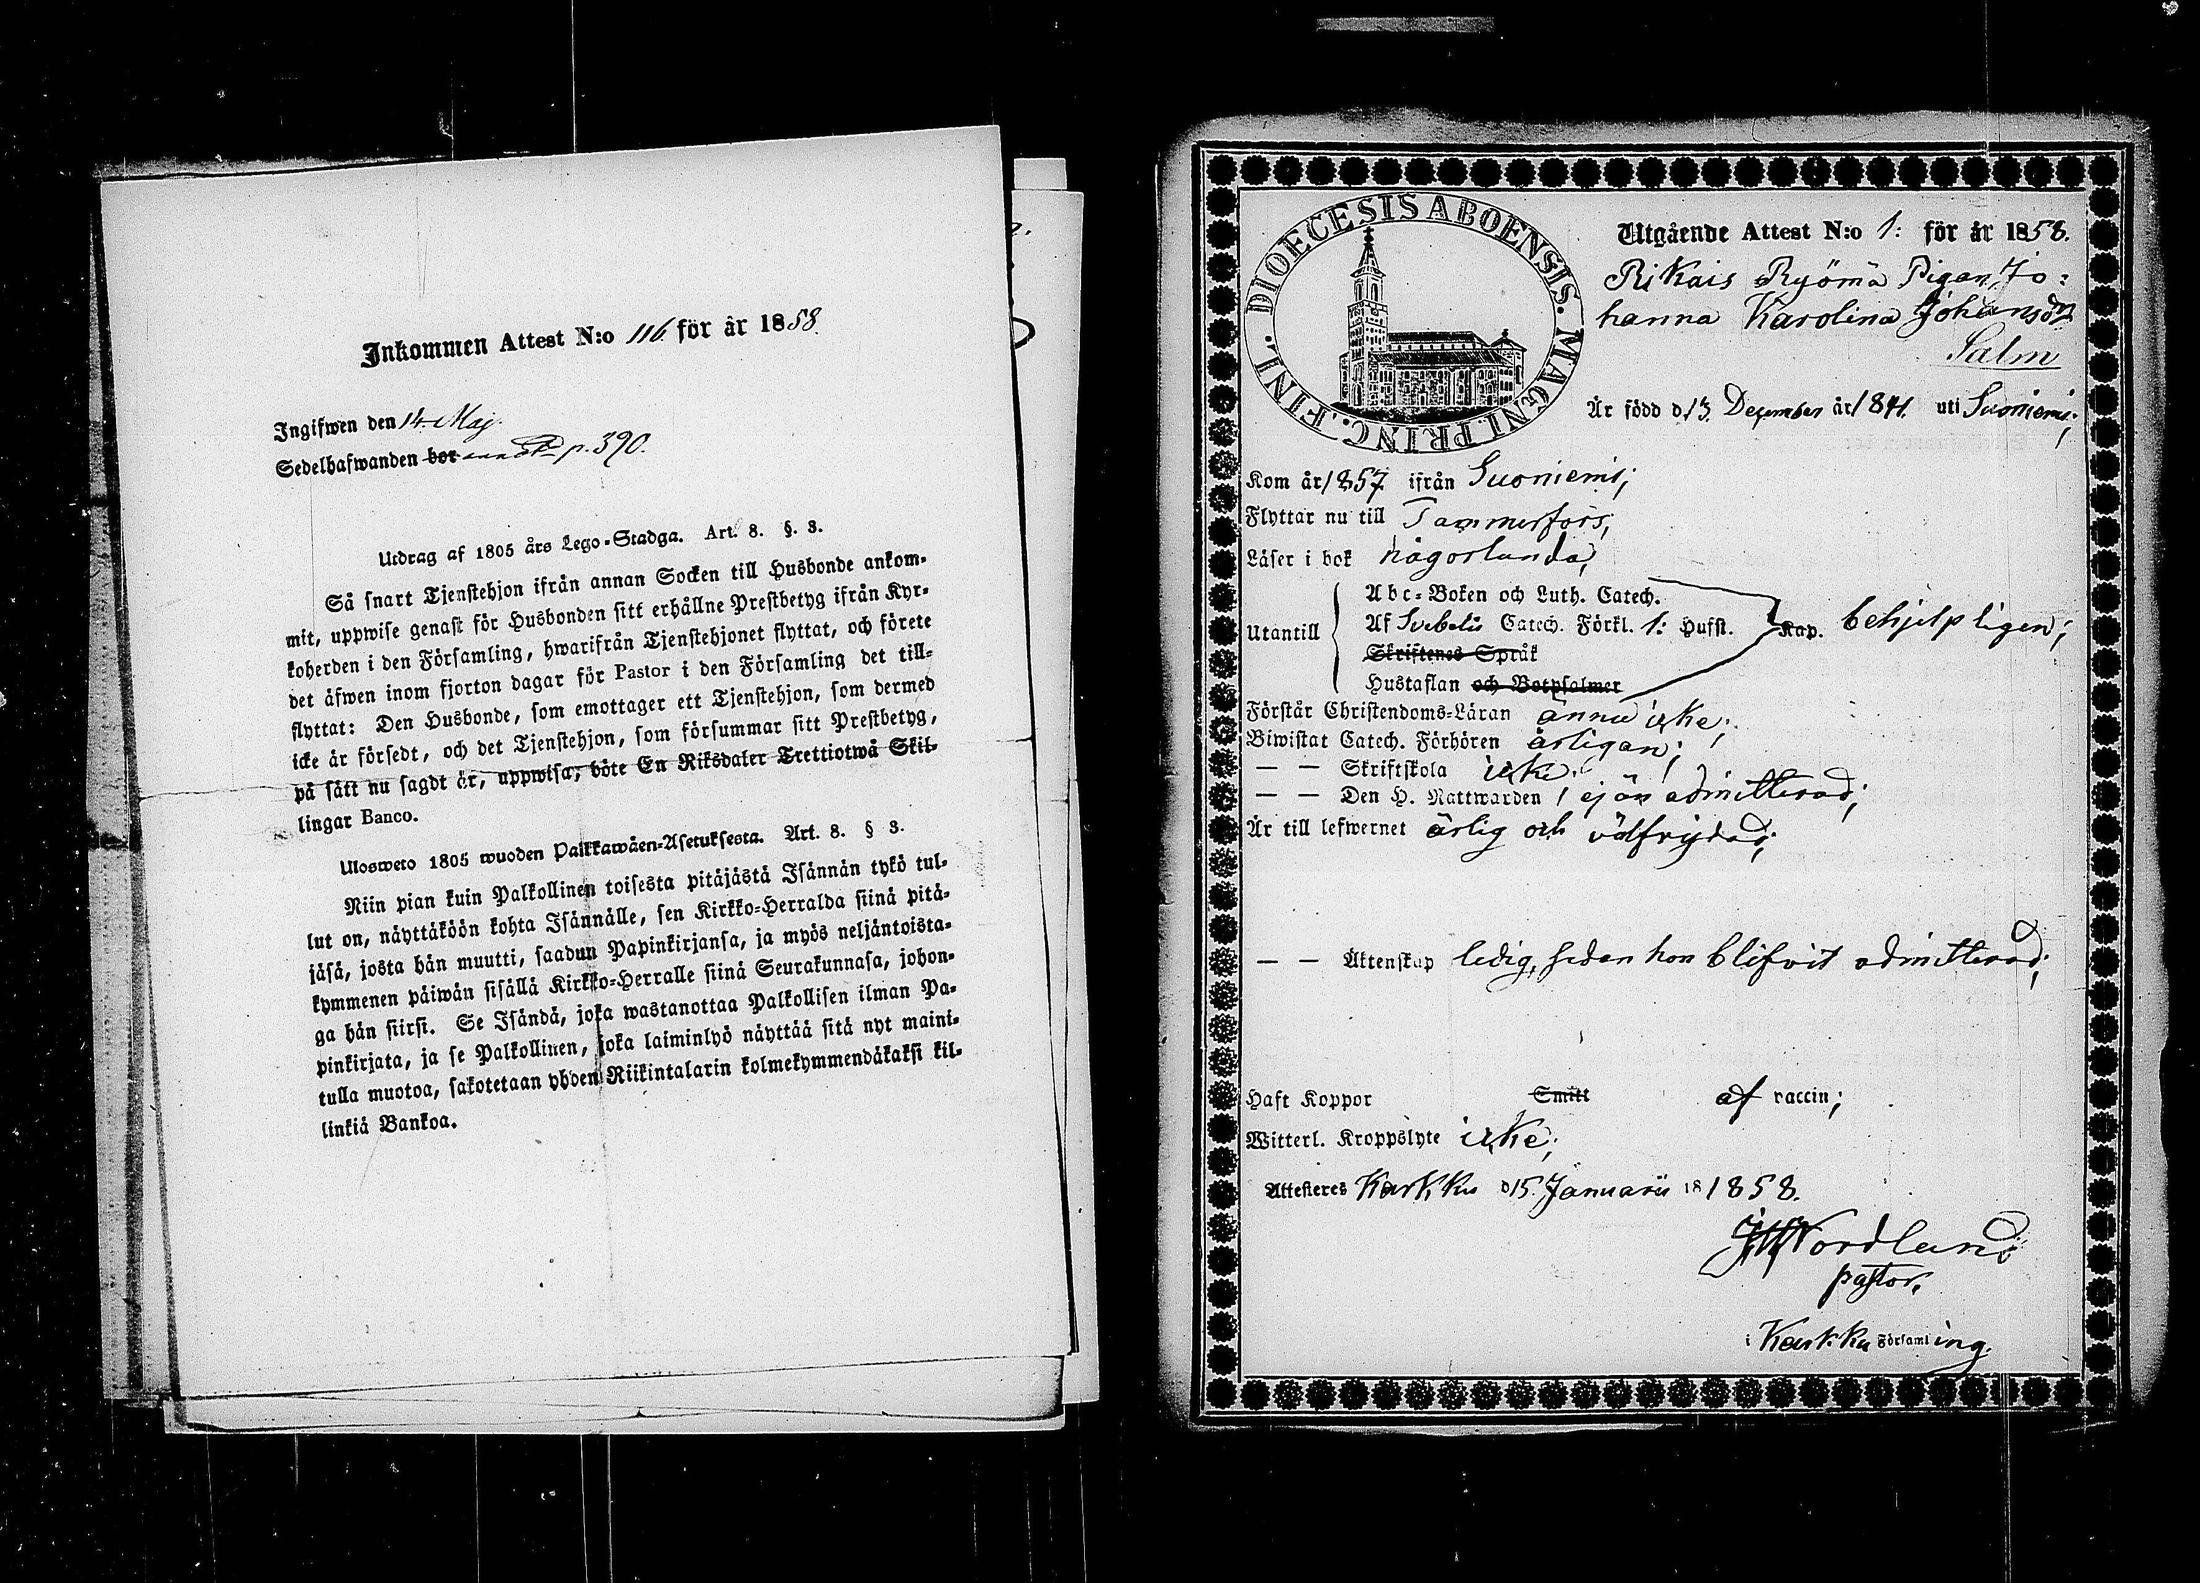 Inkommen Attest N:o 116 för år 1858.
Ingifwen den 14. Maj.
Sedelhafwanden bor p. 390.
Utdrag af 1805 års Lego-Stadga. Art. 8. §. 3.
Så snart Tjenstehjon ifrån annan Socken till Husbonde ankom-
mit, uppwise genast för Husbonden sitt erhållne Prestbetyg ifrån Kyr-
koherden i den Församling, hwarifrån Tjenstehjonet flyttat, och förete
det äfwen inom fjorton dagar för Pastor i den Församling det till-
flyttat: Den Husbonde, som emottager ett Tjenstehjon, som dermed
icke är försedt, och det Tjenstehjon, som försummar sitt Prestbetyg,
på sätt nu sagdt är, uppwisa, böte En Riksdaler Trettiotwå Skil-
lingar Banco.
Ulosweto 1805 wuoden Palkkawäen-Asetuksesta. Art. 8. § 3.
Niin pian kuin Palkollinen toisesta pitäjästä Isännän tykö tul-
lut on, näyttäköön kohta Isännälle, sen Kirkko-Herralda siinä pitä-
jäsä, josta hän muutti, saadun Papinkirjansa, ja myös neljäntoista-
kymmenen päiwän sisällä Kirkko-Herralle siinä Seurakunnasa, johon-
ga hän siirsi. Se Isändä, joka wastanottaa Palkollisen ilman Pa-
pinkirjata, ja se Palkollinen, joka laiminlyö näyttää sitä nyt maini-
tulla muotoa, sakotetaan yhden Riikintalarin kolmekymmendäkaksi kil-
linkiä Bankoa.
DIOECESIS ABOENSIS. MAGNI. PRINC. FINL.
Utgående Attest N:o 1: för år 1858.
Rikais Ryömä Pigan Jo:
hanna Karolina Johansdr
Salm
Är född d 13 December år 1841. uti Suoniemi;
Kom år 1857 ifrån Suoniemi;
Flyttar nu till Tammerfors;
Läser i bok någorlunda,
Utantill
Abc-Boken och Luth. Catech.
Af Svebelii Catech. Förkl. 1: Hufst. Kap. behjelpligen;
Skriftenes Språk
Hustaflan och Botpsalmer
Förstår Christendoms-Läran ännu icke;
Biwistat Catech. Förhören årligan;
— — Skriftskola icke;
— — Den H. Nattwarden ej än admitterad;
Är till lefwernet ärlig och välfrejdad;
— — Äktenskap ledig, sedan hon blifvit admitterad;
Haft Koppor Smitt af vaccin;
Witterl. Kroppslyte icke;
Attesteres Karkku d 15. Januarii 18 1858.
Nordlund
pastor,
i Karkku Församling.